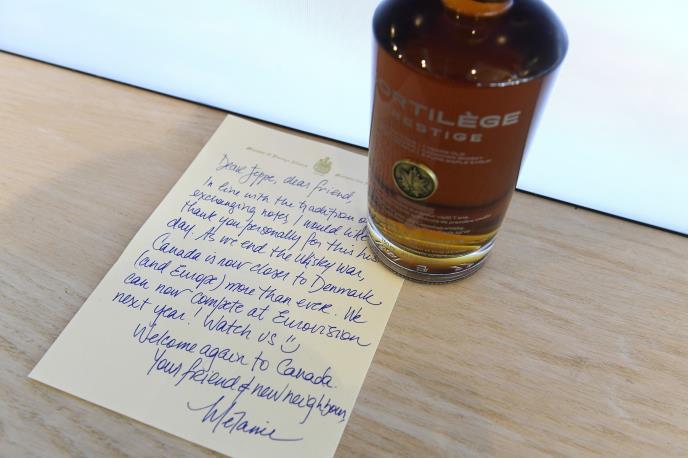 Dear Jeppe, dear friend,
In line with the tradition
exchanging notes, I would like
thank you personally for this
day. As we end the Whisky war,
Canada is now closer to Denmark
(and Europe) more than ever. We
can now compete at Eurovision
next year! Watch us
Welcome again to Canada.
Your friend & new neighbour,
Mélanie
ORTILÈGE
RESTIGE